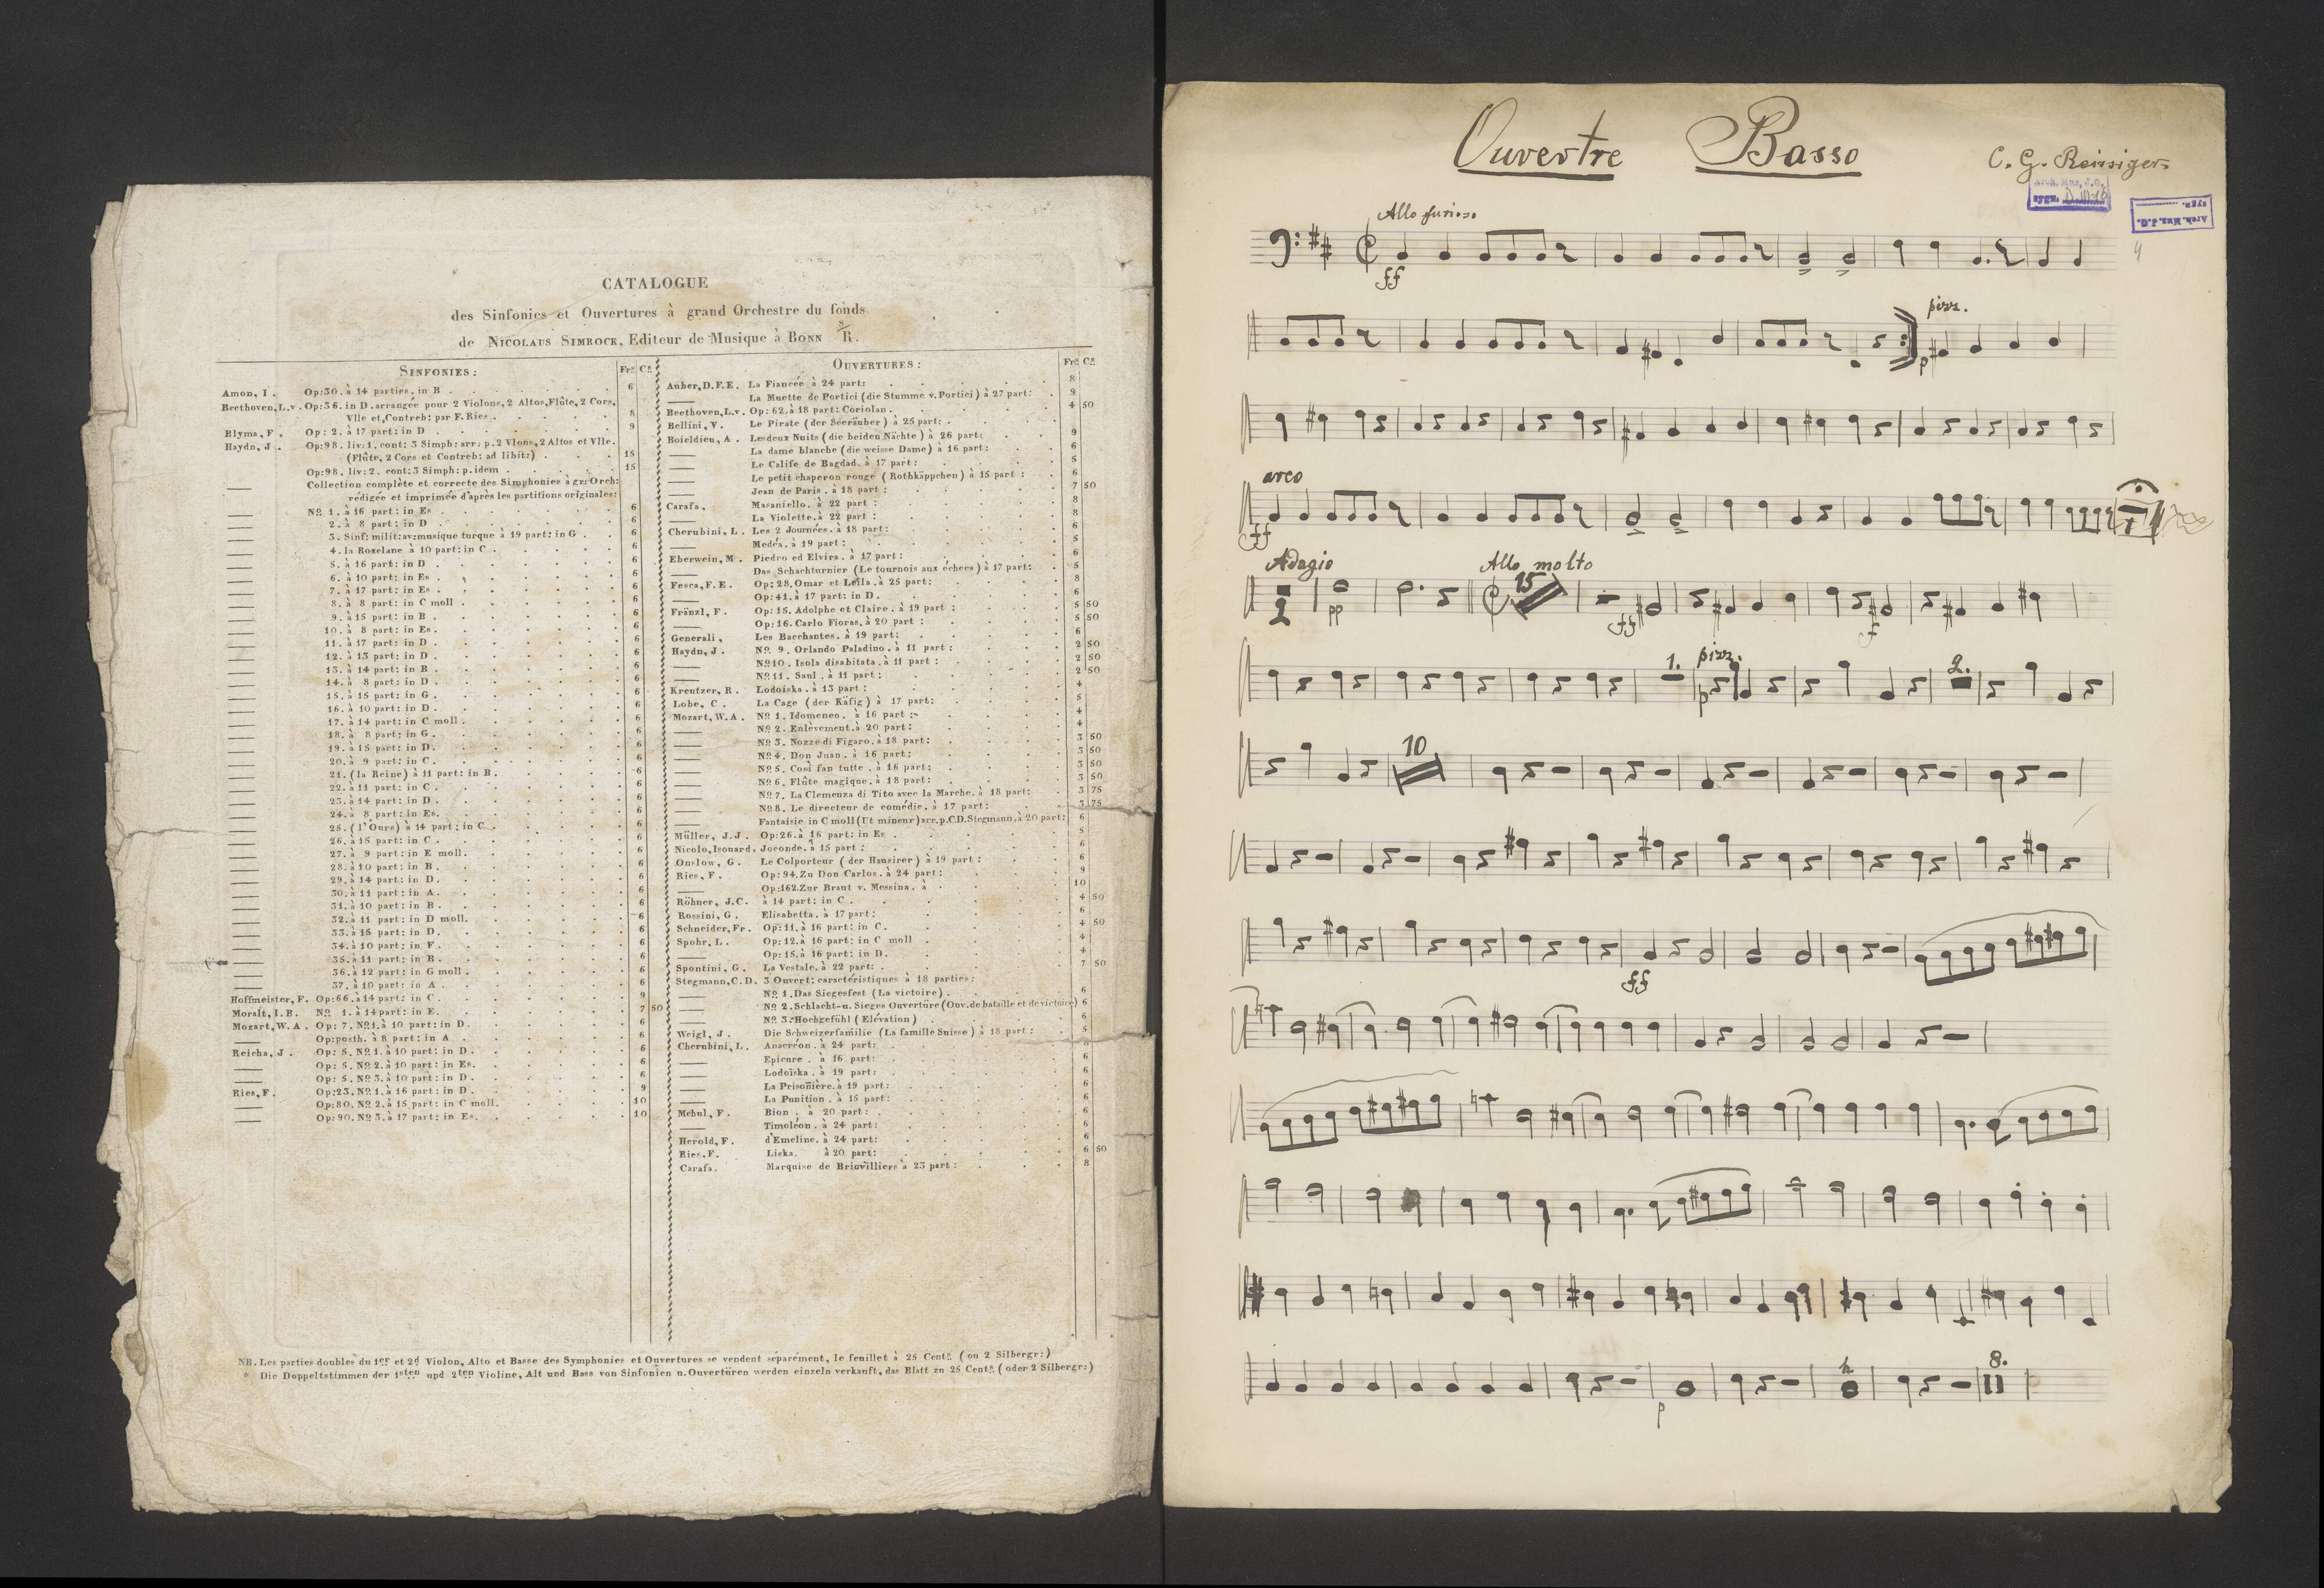 CATALOGUE
des Sinfonies et Ouvertures à grand Orchestre du fonds
de NICOLAUS SIMROCK, Editeur de Musique à BONN S/R.
SINFONIES: Frs Cs
Amon, I. Op:30. à 14 parties. in B . 6
Beethoven, L.v. Op:36. in D. arrangée pour 2 Violons, 2 Altos, Flûte, 2 Cors,
Vlle et Contreb: par F. Ries . 8
Blyma, F. Op: 2. à 17 part: in D . 9
Haydn, J. Op:98. liv:1. cont: 3 Simph: arr: p. 2 Vlons, 2 Altos et Vlle.
(Flûte, 2 Cors et Contreb: ad libit:) . 15
Op:98. liv:2. cont: 3 Simph: p. idem . 15
Collection complète et correcte des Simphonies à gr: Orch:
rédigée et imprimée d'après les partitions originales:
No 1. à 16 part: in Es . 6
2. à 8 part: in D . 6
3. Sinf: milit: av: musique turque à 19 part: in G . 6
4. la Roxelane à 10 part: in C . 6
5. à 16 part: in D . 6
6. à 10 part: in Es . 6
7. à 17 part: in Es . 6
8. à 8 part: in C moll . 6
9. à 15 part: in B . 6
10. à 8 part: in Es . 6
11. à 17 part: in D . 6
12. à 13 part: in D . 6
13. à 14 part: in B . 6
14. à 8 part: in D . 6
15. à 15 part: in G . 6
16. à 10 part: in D . 6
17. à 14 part: in C moll . 6
18. à 8 part: in G . 6
19. à 15 part: in D . 6
20. à 9 part: in C . 6
21. (la Reine) à 11 part: in B . 6
22. à 11 part: in C . 6
23. à 14 part: in D . 6
24. à 8 part: in Es . 6
25. (l'Ours) à 14 part: in C . 6
26. à 15 part: in C . 6
27. à 9 part: in E moll . 6
28. à 10 part: in B . 6
29. à 14 part: in D . 6
30. à 11 part: in A . 6
31. à 10 part: in B . 6
32. à 11 part: in D moll . 6
33. à 15 part: in D . 6
34. à 10 part: in F . 6
35. à 11 part: in B . 6
36. à 12 part: in G moll . 6
37. à 10 part: in A . 6
Hoffmeister, F. Op:66. à 14 part: in C . 9
Moralt, I.B. No 1. à 14 part: in E . 7 50
Mozart, W.A. Op: 7. No 1. à 10 part: in D . 6
Op: posth. à 8 part: in A . 6
Reicha, J. Op: 5. No 1. à 10 part: in D . 6
Op: 5. No 2. à 10 part: in Es . 6
Op: 5. No 3. à 10 part: in D . 6
Ries, F. Op:23. No 1. à 16 part: in D . 9
Op:80. No 2. à 15 part: in C moll . 10
Op:90. No 3. à 17 part: in Es . 10
OUVERTURES: Frs Cs
Auber, D.F.E. La Fiancée à 24 part: 8
La Muette de Portici (die Stumme v. Portici) à 27 part: 9
Beethoven, L.v. Op: 62. à 18 part: Coriolan . 4 50
Bellini, V. Le Pirate (der Seeräuber) à 25 part: .
Boieldieu, A. Les deux Nuits (die beiden Nächte) à 26 part: 9
La dame blanche (die weisse Dame) à 16 part: 6
Le Calife de Bagdad. à 17 part: 5
Le petit chaperon rouge (Rothkäppchen) à 15 part: 6
Jean de Paris. à 18 part: 7 50
Carafa. Masaniello. à 22 part: 8
La Violette. à 22 part: 8
Cherubini, L. Les 2 Journées. à 18 part: 6
Medéa. à 19 part: 5
Eberwein, M. Piedro ed Elvira. à 17 part: 6
Das Schachturnier (Le tournois aux échecs) à 17 part: 5
Fesca, F.E. Op: 28. Omar et Leïla. à 25 part: 8
Op: 41. à 17 part: in D. 6
Fränzl, F. Op: 15. Adolphe et Claire. à 19 part: 5 50
Op: 16. Carlo Fioras. à 20 part: 5 50
Generali, Les Bacchantes. à 19 part: 6
Haydn, J. No 9. Orlando Paladino. à 11 part: 2 50
No 10. Isola disabitata. à 11 part: 2 50
No 11. Saul. à 11 part: 2 50
Kreutzer, R. Lodoiska. à 13 part: 4
Lobe, C. La Cage (der Käfig) à 17 part: 5
Mozart, W.A. No 1. Idomeneo. à 16 part: 4
No 2. Enlèvement. à 20 part: 4
No 3. Nozze di Figaro. à 18 part: 3 50
No 4. Don Juan. à 16 part: 3 50
No 5. Cosi fan tutte. à 16 part: 3 50
No 6. Flûte magique. à 18 part: 3 50
No 7. La Clemenza di Tito avec la Marche. à 18 part: 3 75
No 8. Le directeur de comédie. à 17 part: 3 75
Fantaisie in C moll (Ut mineur) arr. p. C.D. Stegmann, à 20 part: 6
Müller, J.J. Op:26. à 16 part: in Es . 5
Nicolo, Isouard. Joconde. à 15 part: 6
Onslow, G. Le Colporteur (der Hausirer) à 19 part: 6
Ries, F. Op:94. Zu Don Carlos. à 24 part: 9
Op:162. Zur Braut v. Messina. à 10
Röhner, J.C. à 14 part: in C . 4 50
Rossini, G. Elisabetta. à 17 part: 6
Schneider, Fr. Op:11. à 16 part: in C . 4 50
Spohr, L. Op:12. à 16 part: in C moll . 4
Op:15. à 16 part: in D. 4
Spontini, G. La Vestale. à 22 part: . 7 50
Stegmann, C.D. 3 Ouvert: caractéristiques à 18 parties:
No 1. Das Siegesfest (La victoire) . 6
No 2. Schlacht- u. Sieges Ouvertüre (Ouv. de bataille et de victoire) 6
No 3. Hochgefühl (Elévation) 6
Weigl, J. Die Schweizerfamilie (La famille Suisse) à 18 part: 5
Cherubini, L. Anacréon. à 24 part: 6
Epicure. à 16 part: 6
Lodoïska. à 19 part: 6
La Prisonière. à 19 part: 6
La Punition. à 15 part: 6
Méhul, F. Bion. à 20 part: 6
Timoléon. à 24 part: 6
Herold, F. d'Emeline. à 24 part: 6
Ries, F. Liska. à 20 part: 6 50
Carafa. Marquise de Brinvilliers à 23 part: 8
NB. Les parties doubles du 1er et 2d Violon, Alto et Basse des Symphonies et Ouvertures se vendent séparément, le feuillet à 25 Cents (ou 2 Silbergr:)
Die Doppeltstimmen der 1sten und 2ten Violine, Alt und Bass von Sinfonien u. Ouvertüren werden einzeln verkauft, das Blatt zu 25 Cents (oder 2 Silbergr:)
Ouvertre Basso
C. G. Reissiger
Arch. Muz. J.G.
Arch. Muz. J.G.
sygn.
Allo furioso
ff
pizz.
p
arco
ff
Adagio
Allo molto
2 pp 15 ff f
1. pizz. 2.
p
10
ff
8.
p